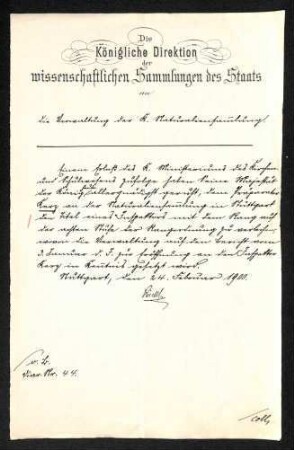 Die
Königliche Direktion
der
wissenschaftlichen Sammlungen des Staats
an
die Verwaltung der K. Naturaliensammlung.
Einem Erlaß des K. Ministeriums des Kirchen-
und Schulwesens zufolge haben Seine Majestät
der König allergnädigst geruht, dem Präparator
Kerz an der Naturaliensammlung in Stuttgart
den Titel eines Inspektors mit dem Rang auf
der achten Stufe der Rangordnung zu verleihen,
wovon die Verwaltung auf den Bericht vom
3. Januar d. J. zur Eröffnung an den Inspektor
Kerz in Kenntnis gesetzt wird.
Stuttgart, den 24. Februar 1900.
Diar. Nr. 44.